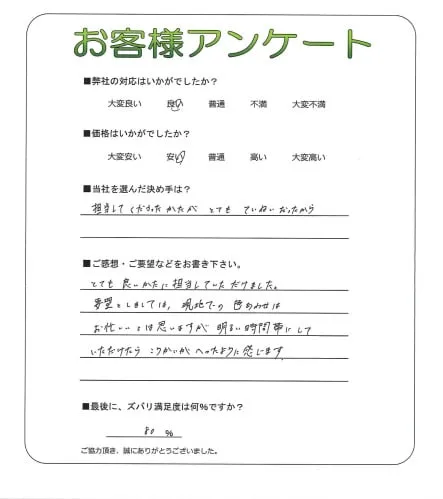 お客様アンケート
■弊社の対応はいかがでしたか？
大変良い 良い 普通 不満 大変不満
■価格はいかがでしたか？
大変安い 安い 普通 高い 大変高い
■当社を選んだ決め手は？
担当してくださったかたが とても ていねいだったから
■ご感想・ご要望などをお書き下さい。
とても良いかたに担当していただけました。
要望としましては、現地での 色あわせは
お忙しいとは思いますが 明るい時間帯にして
いただけたら こりかいが へったように感じます
■最後に、ズバリ満足度は何％ですか？
80 %
ご協力頂き、誠にありがとうございました。